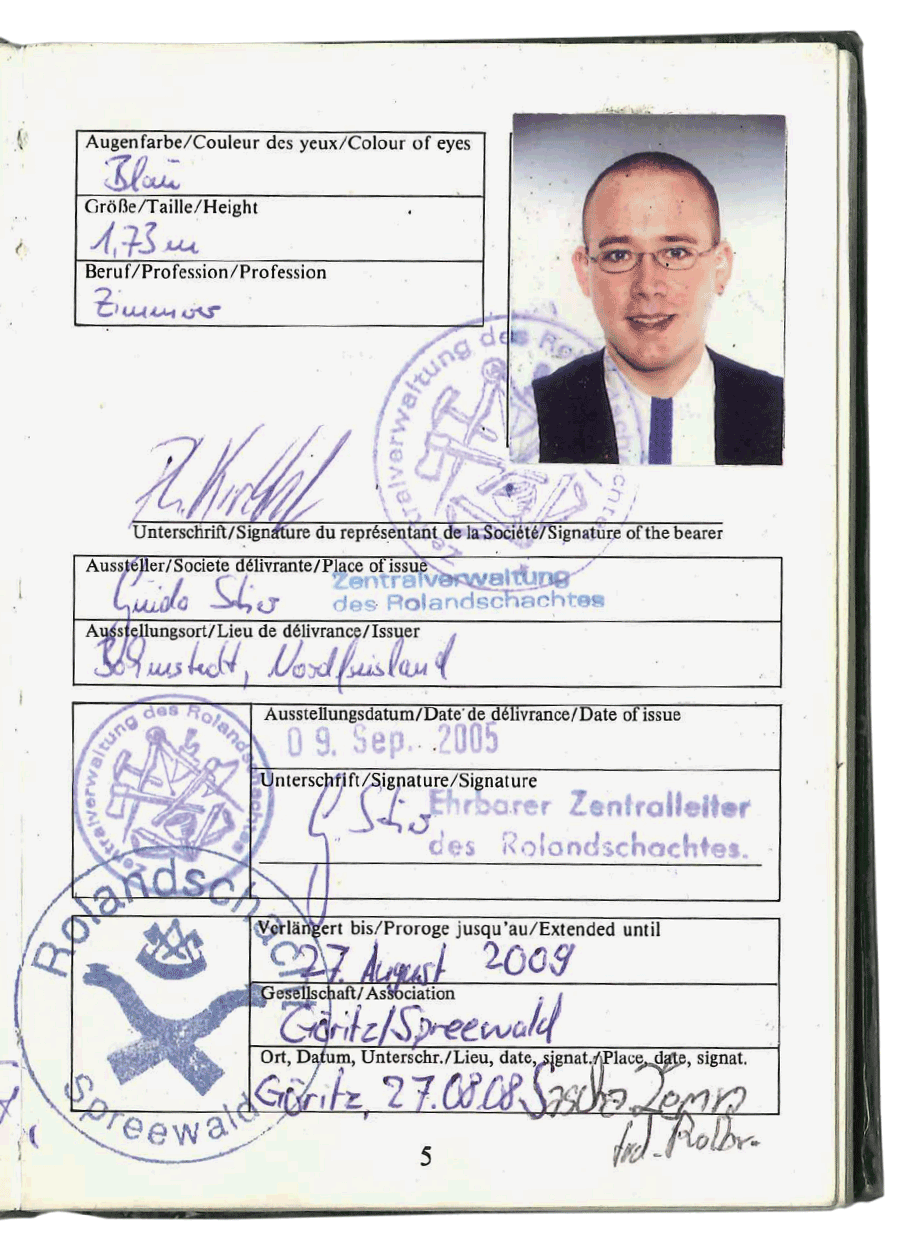 Augenfarbe/Couleur des yeux/Colour of eyes
Blau
Größe/Taille/Height
1,73 m
Beruf/Profession/Profession
Zimmerer
Zentralverwaltung des Rolandschachtes
Unterschrift/Signature du représentant de la Société/Signature of the bearer
Aussteller/Societe délivrante/Place of issue
Guido Stier
Zentralverwaltung
des Rolandschachtes
Ausstellungsort/Lieu de délivrance/Issuer
Bohmstedt, Nordfriesland
Zentralverwaltung des Rolandschachtes
Ausstellungsdatum/Date de délivrance/Date of issue
09. Sep. 2005
Unterschrift/Signature/Signature
G. Stier
Ehrbarer Zentralleiter
des Rolandschachtes.
Rolandschacht
Spreewald
Verlängert bis/Proroge jusqu'au/Extended until
27. August 2009
Gesellschaft/Association
Göritz/Spreewald
Ort, Datum, Unterschr./Lieu, date, signat./Place, date, signat.
Göritz, 27.08.08 Sascha
5